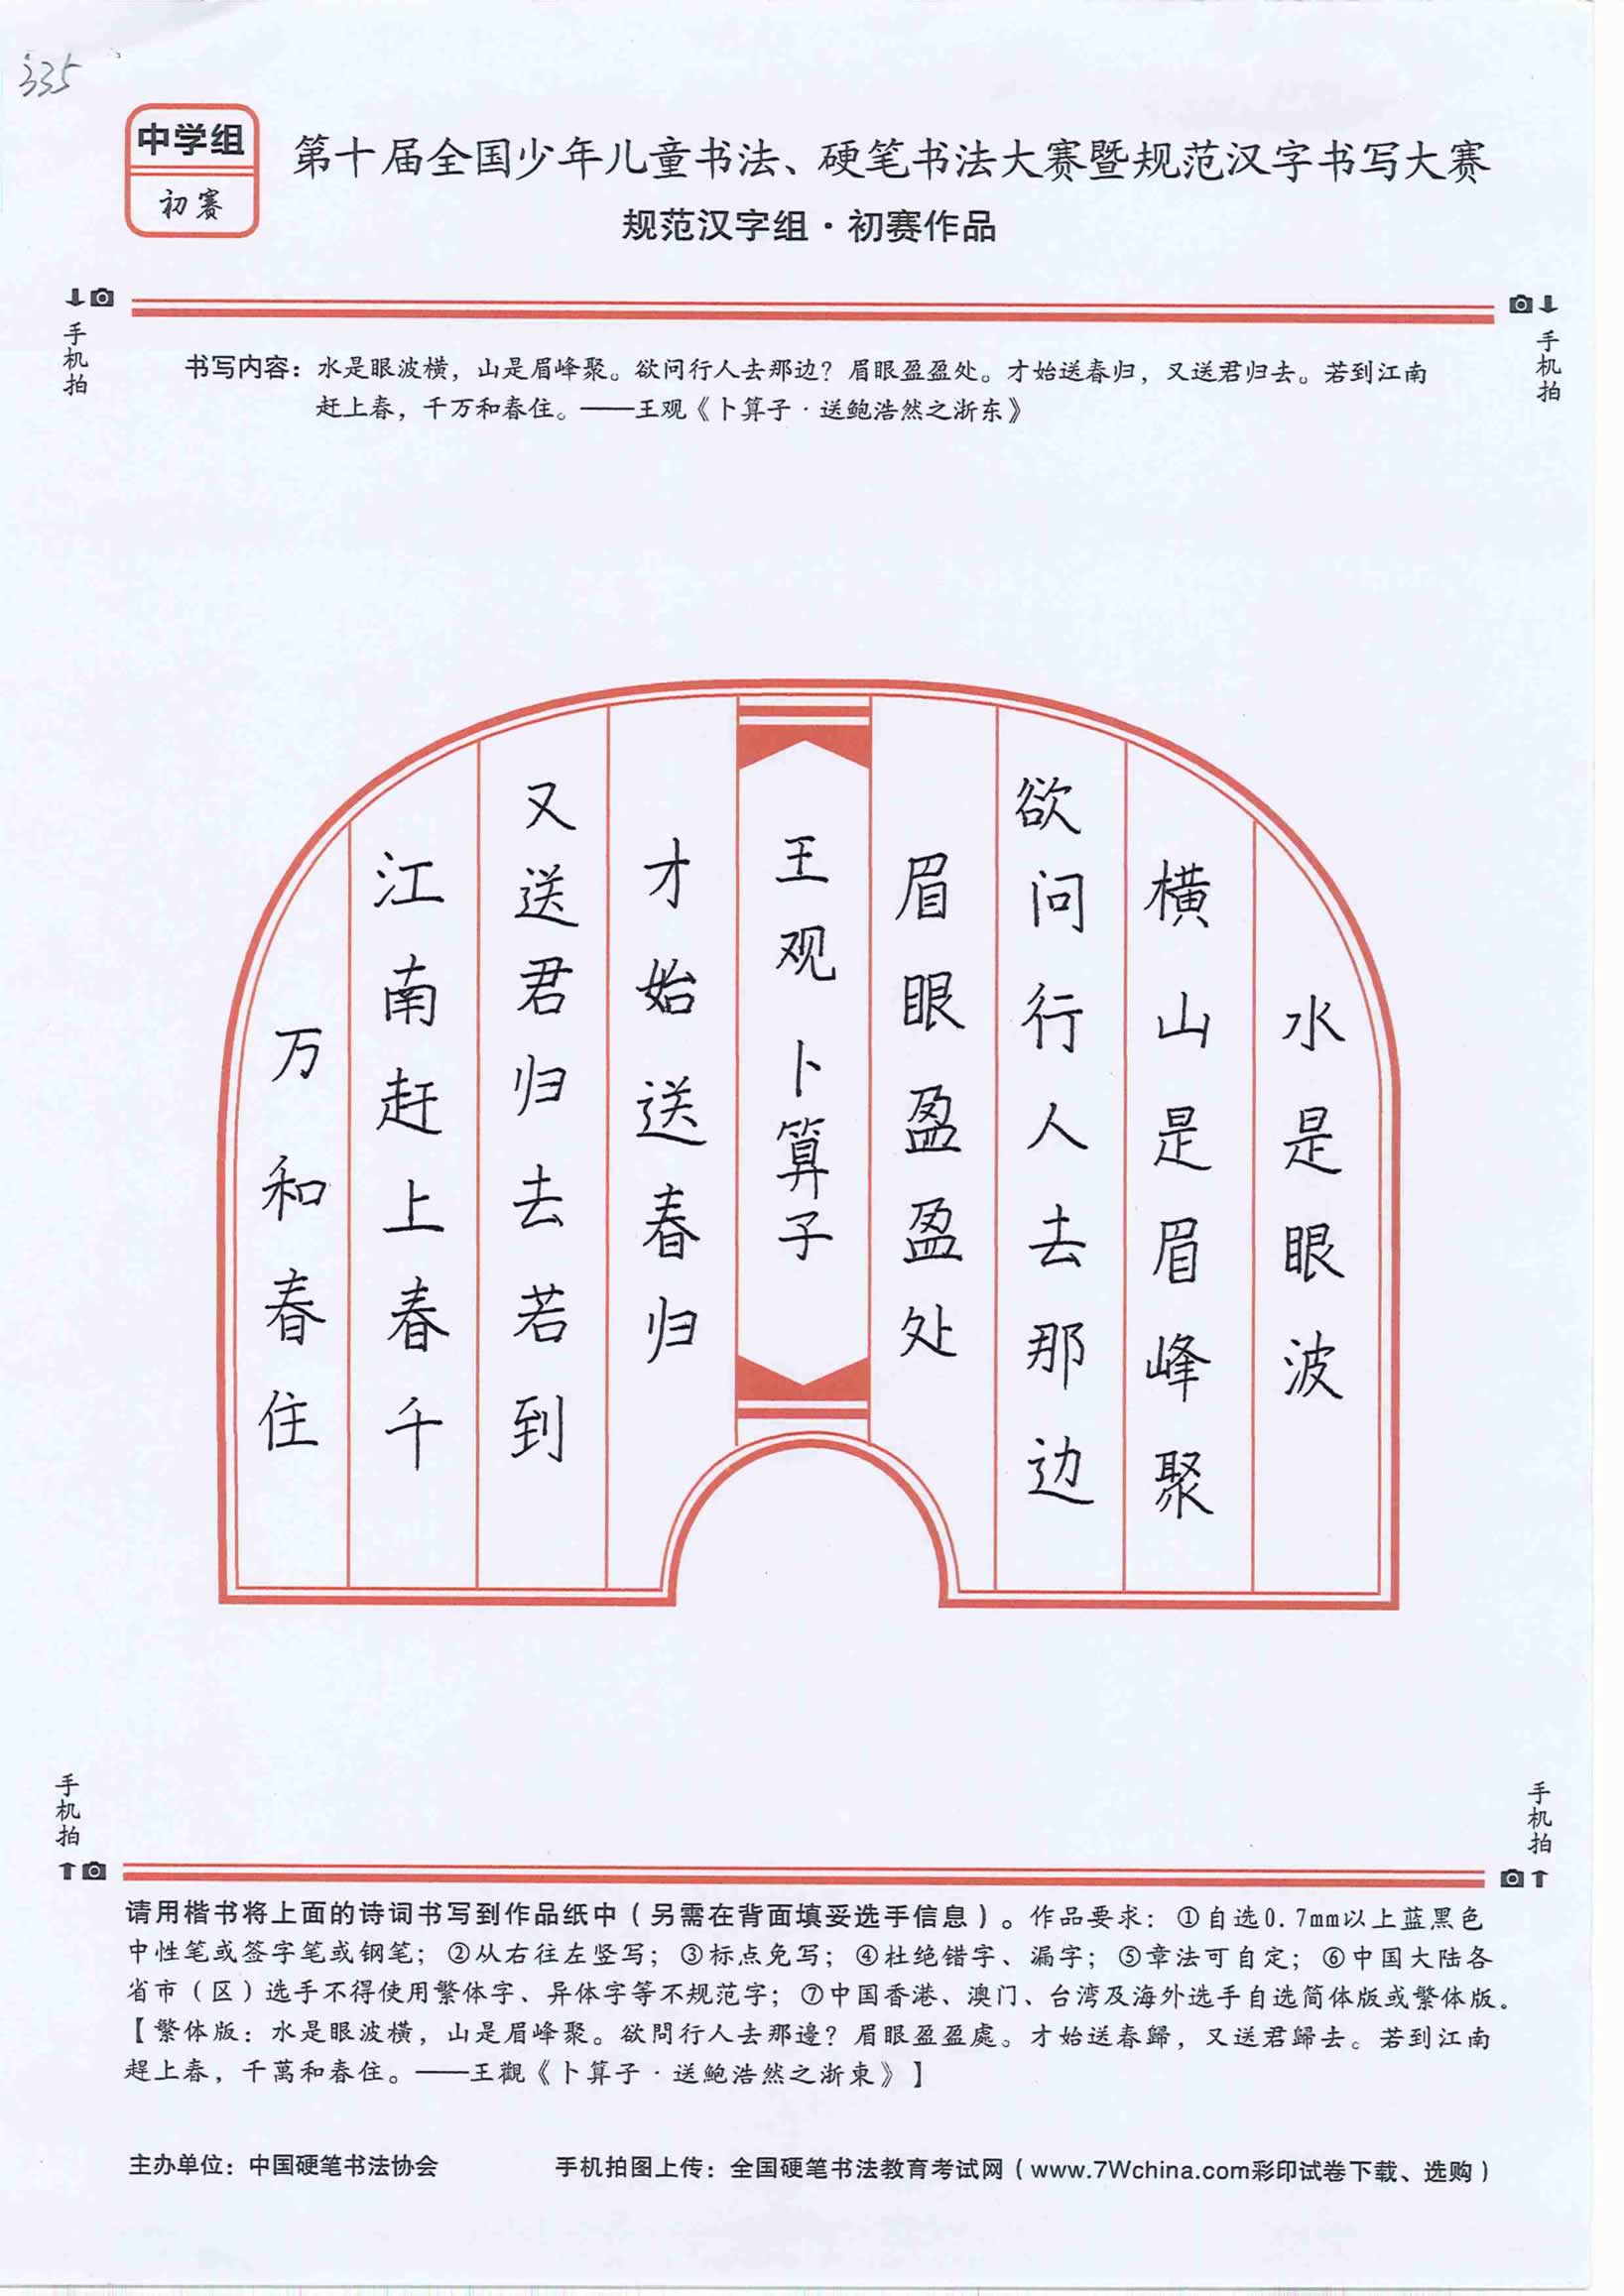 335
中学组
初赛
第十届全国少年儿童书法、硬笔书法大赛暨规范汉字书写大赛
规范汉字组·初赛作品
手机拍
手机拍
书写内容：水是眼波横，山是眉峰聚。欲问行人去那边？眉眼盈盈处。才始送春归，又送君归去。若到江南
赶上春，千万和春住。——王观《卜算子·送鲍浩然之浙东》
水是眼波
横山是眉峰聚
欲问行人去那边
眉眼盈盈处
王观 卜算子
才始送春归
又送君归去若到
江南赶上春千
万和春住
手机拍
手机拍
请用楷书将上面的诗词书写到作品纸中（另需在背面填妥选手信息）。作品要求：①自选0.7mm以上蓝黑色
中性笔或签字笔或钢笔；②从右往左竖写；③标点免写；④杜绝错字、漏字；⑤章法可自定；⑥中国大陆各
省市（区）选手不得使用繁体字、异体字等不规范字；⑦中国香港、澳门、台湾及海外选手自选简体版或繁体版。
【繁体版：水是眼波橫，山是眉峰聚。欲問行人去那邊？眉眼盈盈處。才始送春歸，又送君歸去。若到江南
趕上春，千萬和春住。——王觀《卜算子·送鮑浩然之浙東》】
主办单位：中国硬笔书法协会
手机拍图上传：全国硬笔书法教育考试网（www.7Wchina.com彩印试卷下载、选购）